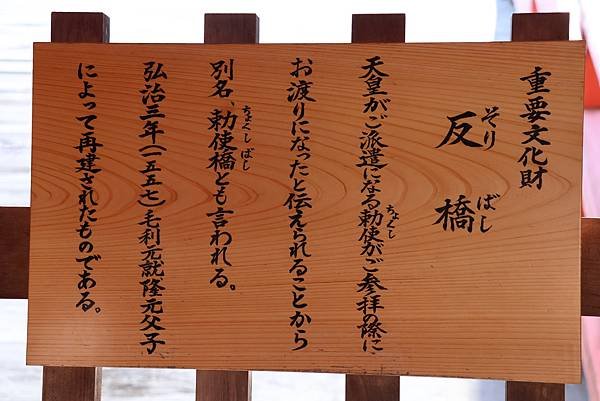 重要文化財
反橋
そり ばし
天皇がご派遣になる勅使がご参拝の際に
ちょくし
お渡りになったと伝えられることから
別名、勅使橋とも言われる。
ちょくし ばし
弘治三年(一五五七)毛利元就隆元父子
によって再建されたものである。